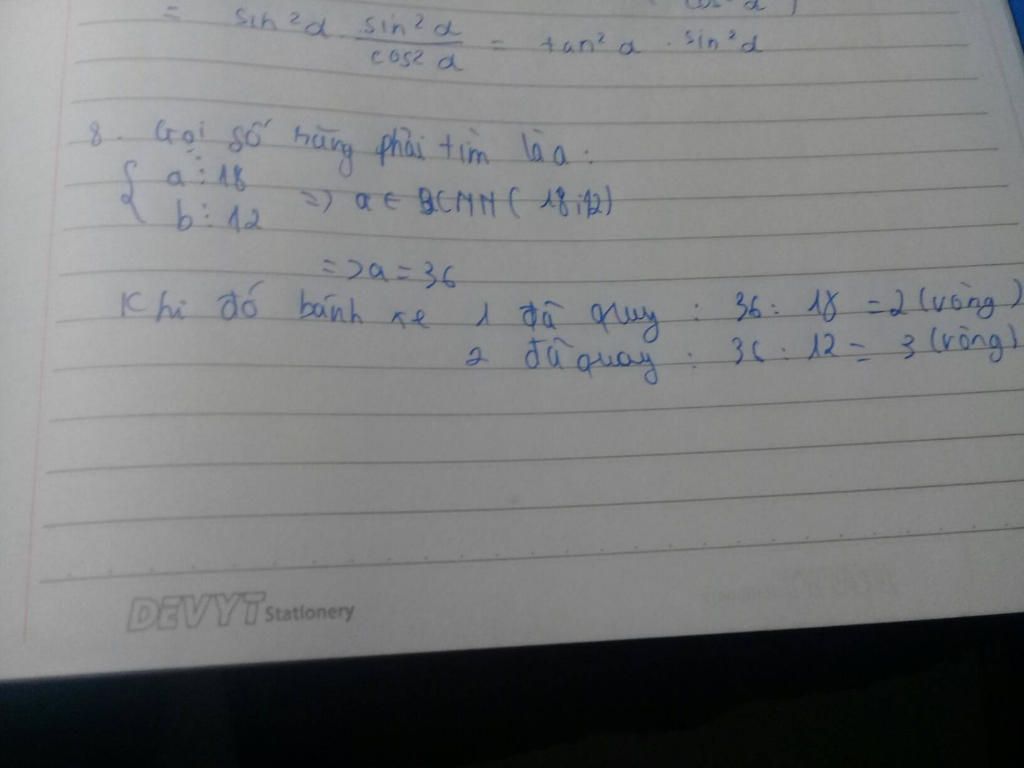 = sin²α . sin²α / cos²α = tan²α . sin²α
8. Gọi số răng phải tìm là a :
{ a ⋮ 18
b ⋮ 12 => a ∈ BCNN ( 18 ; 12 )
=> a = 36
Khi đó bánh xe 1 đã quy : 36 : 18 = 2 (vòng)
2 đã quay : 36 : 12 = 3 (vòng)
DEVYT Stationery